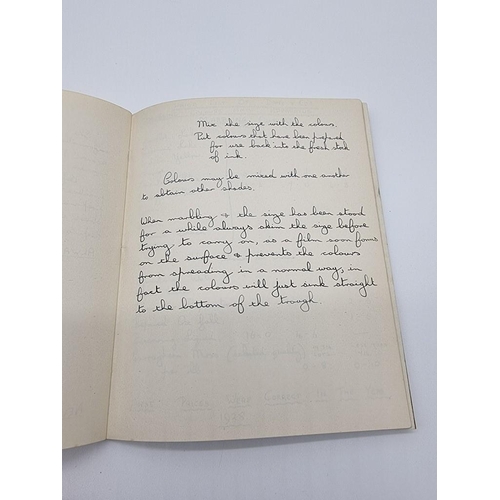 Mix the size with the colours.
Put colours that have been prepared
for use back into the fresh stock
of ink.
Colours may be mixed with one another
to obtain other shades.
When marbling & the size has been stood
for a while always skim the size before
trying to carry on, as a film soon forms
on the surface & prevents the colours
from spreading in a normal way, in
fact the colours will just sink straight
to the bottom of the trough.